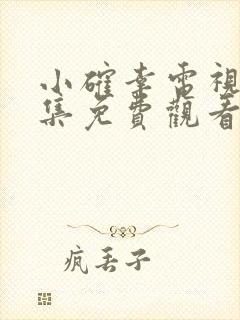 小確幸電視
集免費觀看
疯丢子